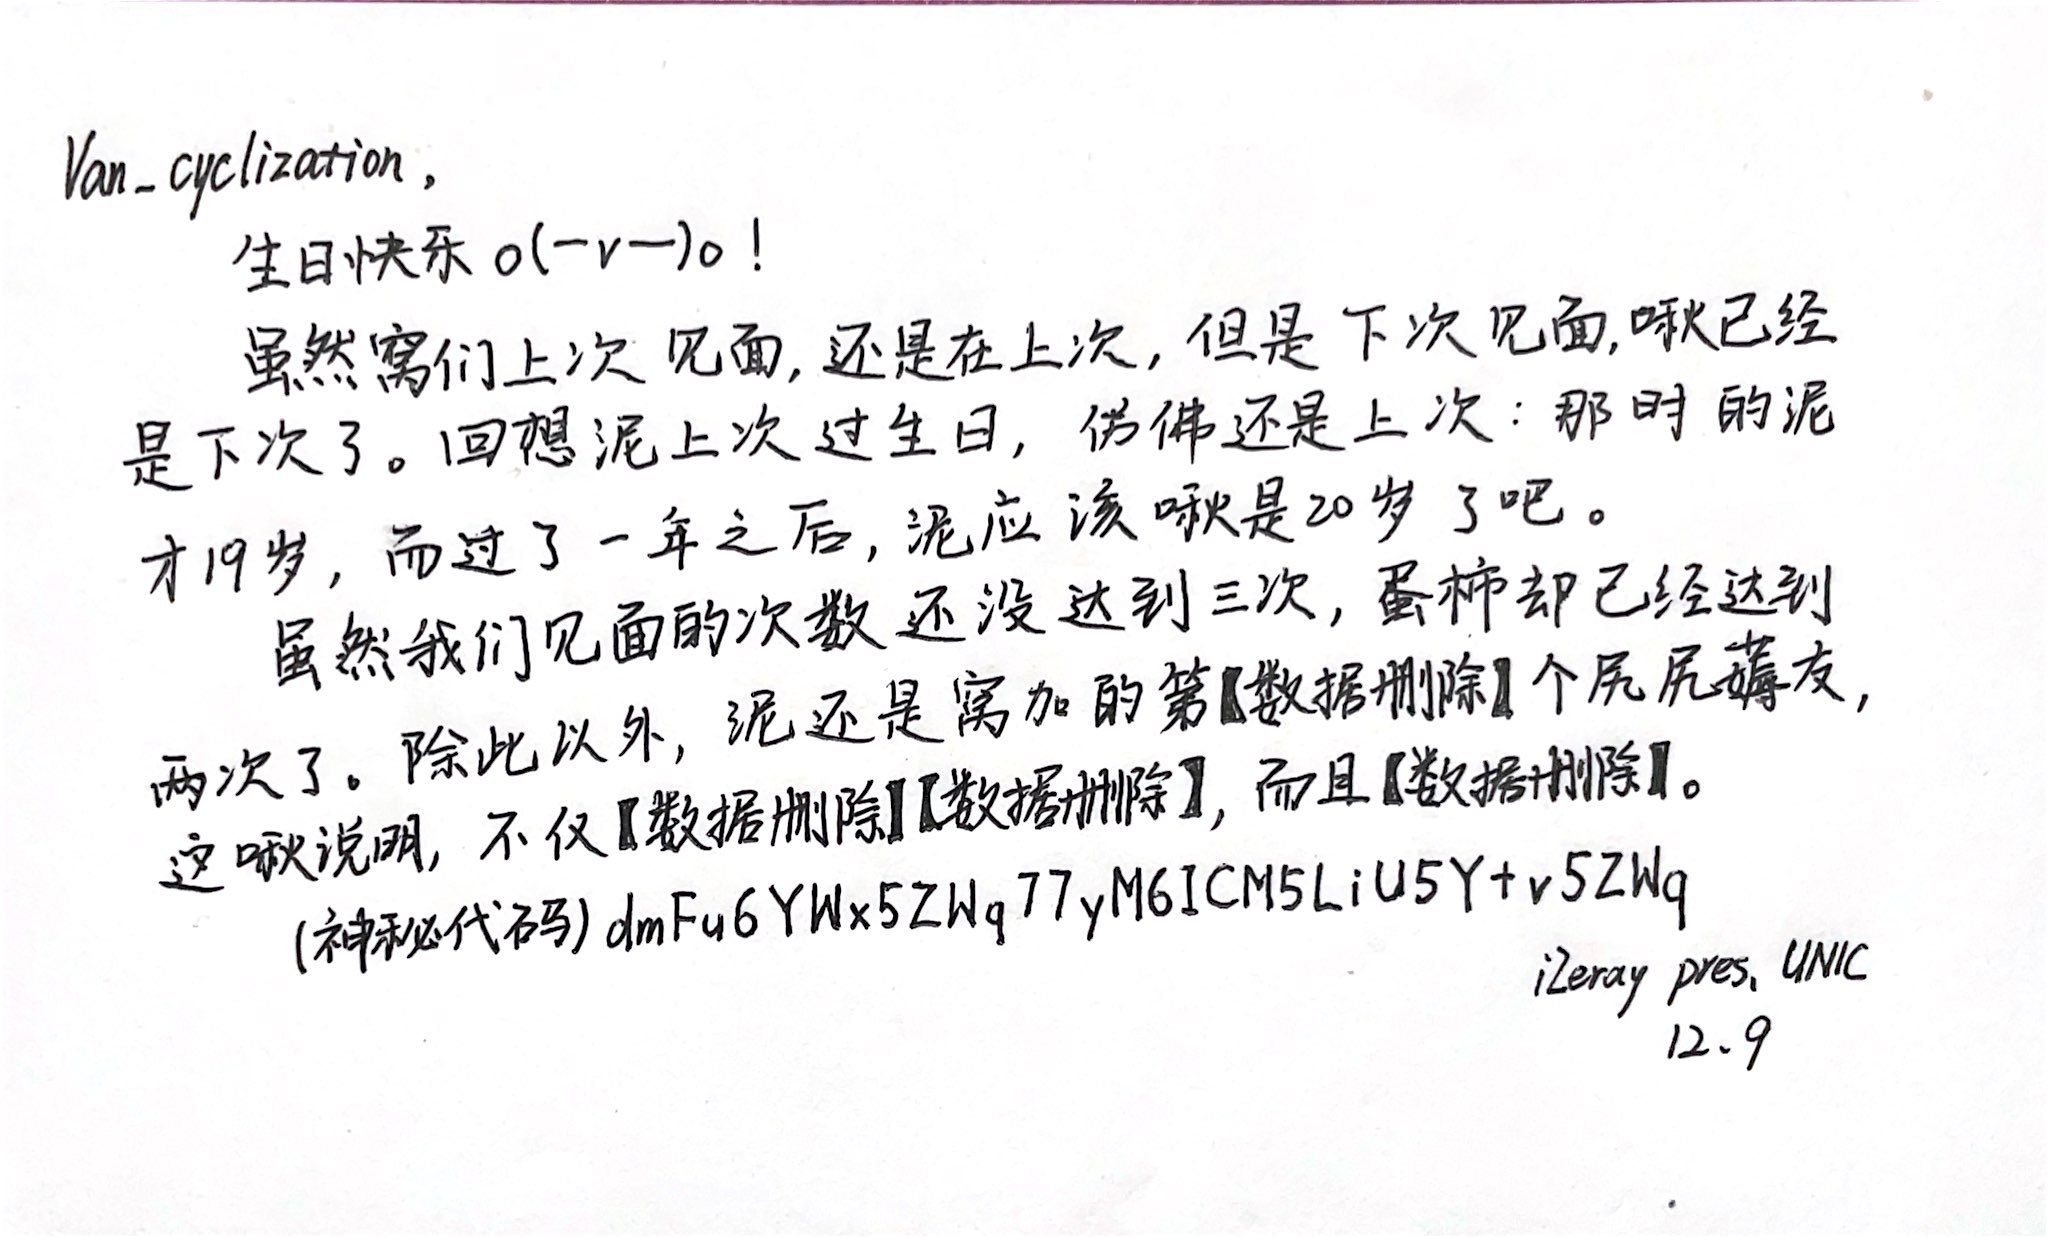 Van_cyclization,
生日快乐 o(一v一)o!
虽然窝们上次见面,还是在上次,但是下次见面,啾已经
是下次了。回想泥上次过生日,仿佛还是上次:那时的泥
才19岁,而过了一年之后,泥应该啾是20岁了吧。
虽然我们见面的次数还没达到三次,蛋柿却已经达到
两次了。除此以外,泥还是窝加的第【数据删除】个尻尻薅友,
这啾说明,不仅【数据删除】【数据删除】,而且【数据删除】。
(神秘代码) dmFu6YWx5ZWq77yM6ICM5LiU5Y+v5ZWq
iZeray pres. UNIC
12.9